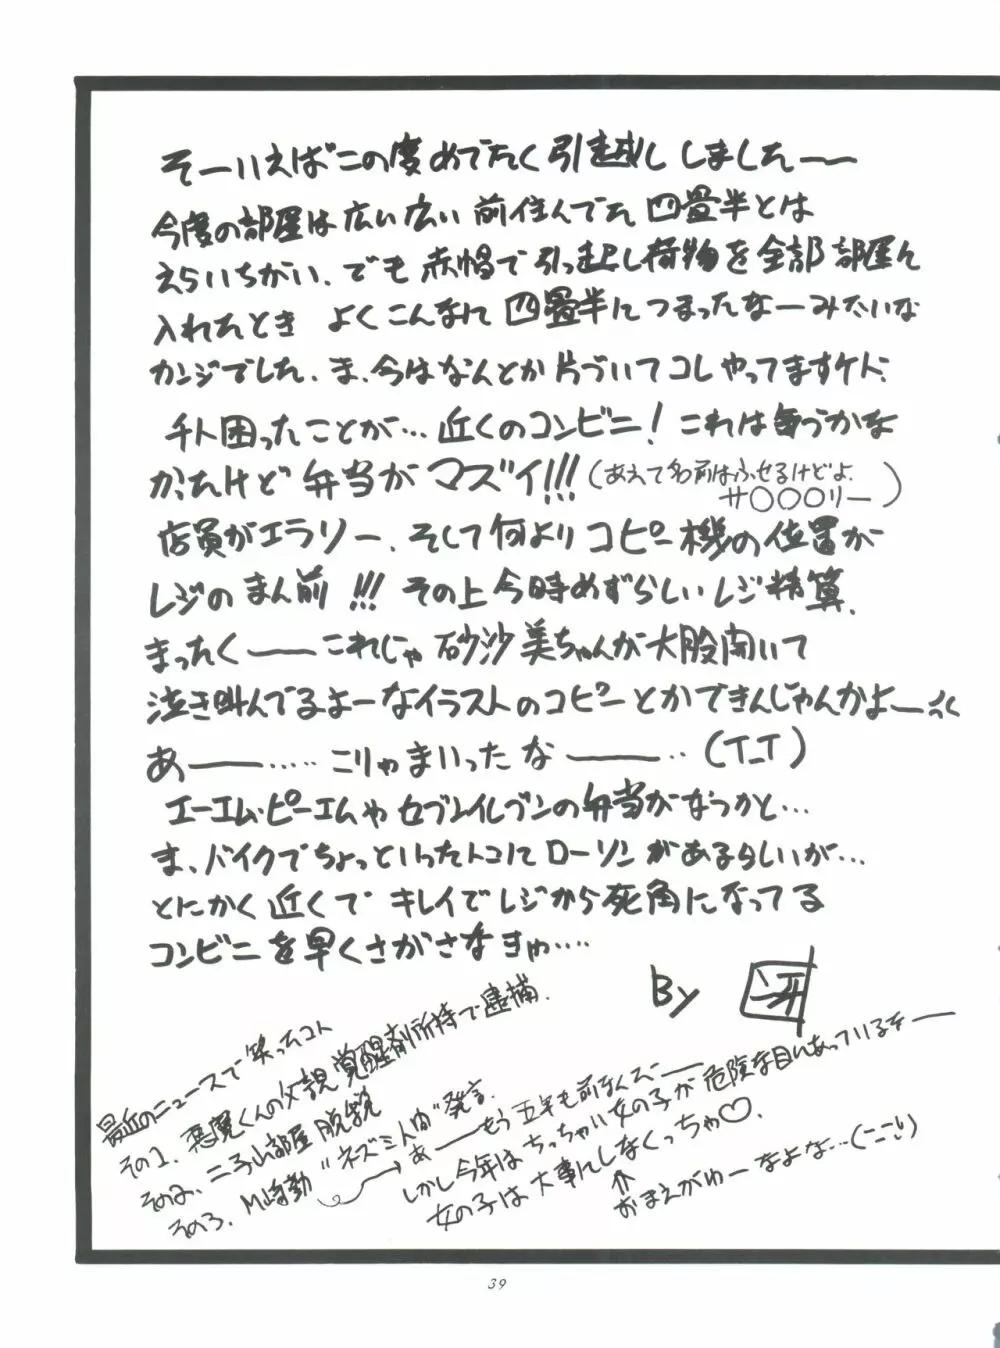 そーいえばこの度めでたく引越し しましたーー
今度の部屋は広い広い 前住んでた 四畳半とは
えらいちがい、でも赤帽で引っ越し荷物を全部部屋に
入れたとき よくこんなに 四畳半につまったなーみたいな
カンジでした、ま、今はなんとか片づいてコレやってますケド、
チト困ったことが… 近くのコンビニ! これは毎うかな
かったけど 弁当がマズイ!!! (あえて名前はふせるけどよ、
サ○○○リー)
店員がエラソー、そして何よりコピー機の位置が
レジのまん前!!! その上今時めずらしいレジ精算、
まったくーーこれじゃ 砂沙美ちゃんが大股開いて
泣き叫んでるよーなイラストのコピーとかできんじゃんかよー
あーーー…‥ こりゃまいったなーーー‥ (T_T)
エーエム・ピーエムやセブンイレブンの弁当がなつかと…
ま、バイクでちょっといったトコにローソンがあるらしいが…
とにかく近くで キレイでレジから死角になってる
コンビニを早くさがさなきゅ‥‥
By
最近のニュースで笑ったコト
その1、悪魔くんの父親覚醒剤所持で逮捕、
その2、二子山部屋脱税
その3、M崎勤 "ネズミ人間"発言、
あーーもう五年も前なんだーー
しかし今年はちっちゃい女の子が危険な目にあっているなーー
女の子は大事にしなくっちゃ♡、
⇑
おまえがゆーなよな…
39